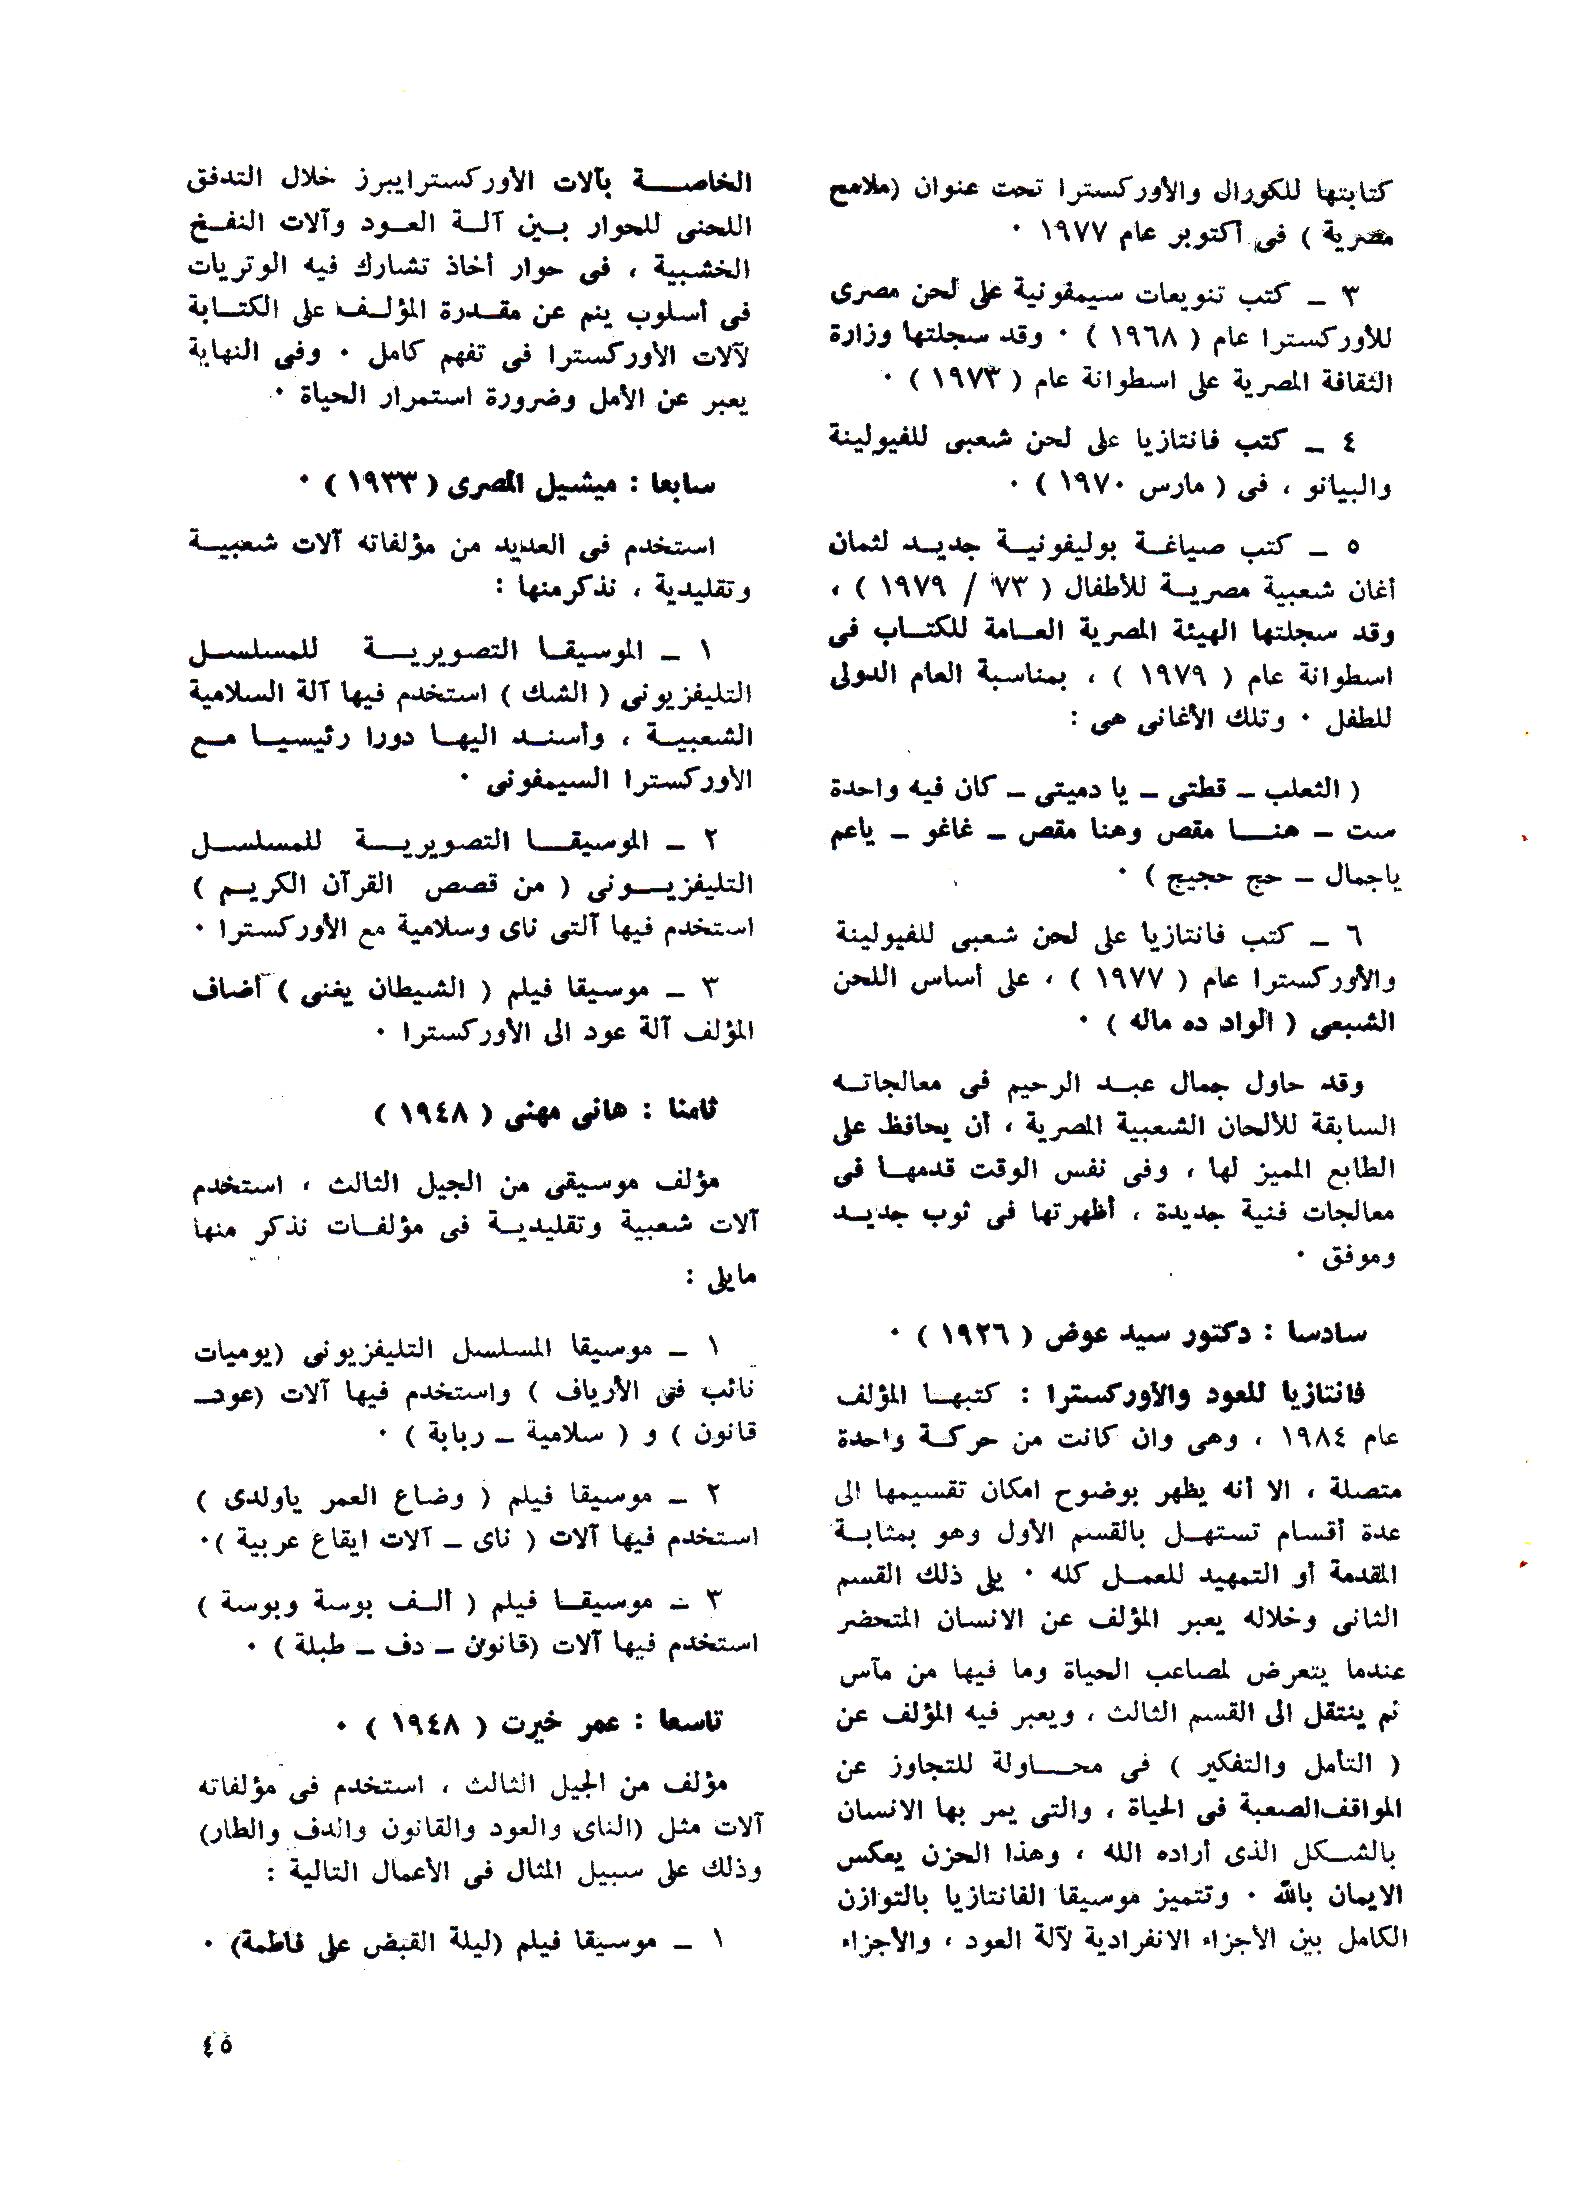 كتابتها للكورال والأوركسترا تحت عنوان (ملامح
مصرية ) فى أكتوبر عام ١٩٧٧ ٠
٣ ـ كتب تنويعات سيمفونية على لحن مصرى
للأوركسترا عام ( ١٩٦٨ ) ٠ وقد سجلتها وزارة
الثقافة المصرية على اسطوانة عام ( ١٩٧٣ ) ٠
٤ ـ كتب فانتازيا على لحن شعبى للفيولينة
والبيانو ، فى ( مارس ١٩٧٠ ) ٠
٥ ـ كتب صياغة بوليفونية جديد لثمان
أغان شعبية مصرية للأطفال ( ٧٣ / ١٩٧٩ ) ،
وقد سجلتها الهيئة المصرية العامة للكتاب فى
اسطوانة عام ( ١٩٧٩ ) ، بمناسبة العام الدولى
للطفل ٠ وتلك الأغانى هى :
( الثعلب ـ قطتى ـ يا دميتى ـ كان فيه واحدة
ست ـ هنا مقص وهنا مقص ـ غاغو ـ ياعم
ياجمال ـ حج حجيج ) ٠
٦ ـ كتب فانتازيا على لحن شعبى للفيولينة
والأوركسترا عام ( ١٩٧٧ ) ، على أساس اللحن
الشبعى ( الواد ده ماله ) ٠
وقد حاول جمال عبد الرحيم فى معالجاته
السابقة للألحان الشعبية المصرية ، أن يحافظ على
الطابع المميز لها ، وفى نفس الوقت قدمها فى
معالجات فنية جديدة ، أظهرتها فى ثوب جديد
وموفق ٠
سادسا : دكتور سيد عوض ( ١٩٢٦ ) ٠
فانتازيا للعود والأوركسترا : كتبها المؤلف
عام ١٩٨٤ ، وهى وان كانت من حركة واحدة
متصلة ، الا أنه يظهر بوضوح امكان تقسيمها الى
عدة أقسام تستهل بالقسم الأول وهو بمثابة
المقدمة أو التمهيد للعمل كله ٠ يلى ذلك القسم
الثانى وخلاله يعبر المؤلف عن الانسان المتحضر
عندما يتعرض لمصاعب الحياة وما فيها من مآس
ثم ينتقل الى القسم الثالث ، ويعبر فيه المؤلف عن
( التأمل والتفكير ) فى محاولة للتجاوز عن
المواقف الصعبة فى الحياة ، والتى يمر بها الانسان
بالشكل الذى أراده الله ، وهذا الحزن يعكس
الايمان بالله ٠ وتتميز موسيقا الفانتازيا بالتوازن
الكامل بين الأجزاء الانفرادية لآلة العود ، والأجزاء
الخاصة بآلات الأوركسترا يبرز خلال التدفق
اللحنى للحوار بين آلة العود وآلات النفخ
الخشبية ، فى حوار أخاذ تشارك فيه الوتريات
فى أسلوب ينم عن مقدرة المؤلف على الكتابة
لآلات الأوركسترا فى تفهم كامل ٠ وفى النهاية
يعبر عن الأمل وضرورة استمرار الحياة ٠
سابعا : ميشيل المصرى ( ١٩٣٣ ) ٠
استخدم فى العديد من مؤلفاته آلات شعبية
وتقليدية ، نذكر منها :
١ ـ الموسيقا التصويرية للمسلسل
التليفزيونى ( الشك ) استخدم فيها آلة السلامية
الشعبية ، وأسند اليها دورا رئيسيا مع
الأوركسترا السيمفونى ٠
٢ ـ الموسيقا التصويرية للمسلسل
التليفزيونى ( من قصص القرآن الكريم )
استخدم فيها آلتى ناى وسلامية مع الأوركسترا ٠
٣ ـ موسيقا فيلم ( الشيطان يغنى ) أضاف
المؤلف آلة عود الى الأوركسترا ٠
ثامنا : هانى مهنى ( ١٩٤٨ )
مؤلف موسيقى من الجيل الثالث ، استخدم
آلات شعبية وتقليدية فى مؤلفات نذكر منها
مايلى :
١ ـ موسيقا المسلسل التليفزيونى (يوميات
نائب فى الأرياف ) واستخدم فيها آلات (عود ـ
قانون ) و ( سلامية ـ ربابة ) ٠
٢ ـ موسيقا فيلم ( وضاع العمر ياولدى )
استخدم فيها آلات ( ناى ـ آلات ايقاع عربية )٠
٣ ـ موسيقا فيلم ( ألف بوسة وبوسة )
استخدم فيها آلات (قانون ـ دف ـ طبلة ) ٠
تاسعا : عمر خيرت ( ١٩٤٨ ) ٠
مؤلف من الجيل الثالث ، استخدم فى مؤلفاته
آلات مثل (الناى والعود والقانون والدف والطار)
وذلك على سبيل المثال فى الأعمال التالية :
١ ـ موسيقا فيلم (ليلة القبض على فاطمة) ٠
٤٥